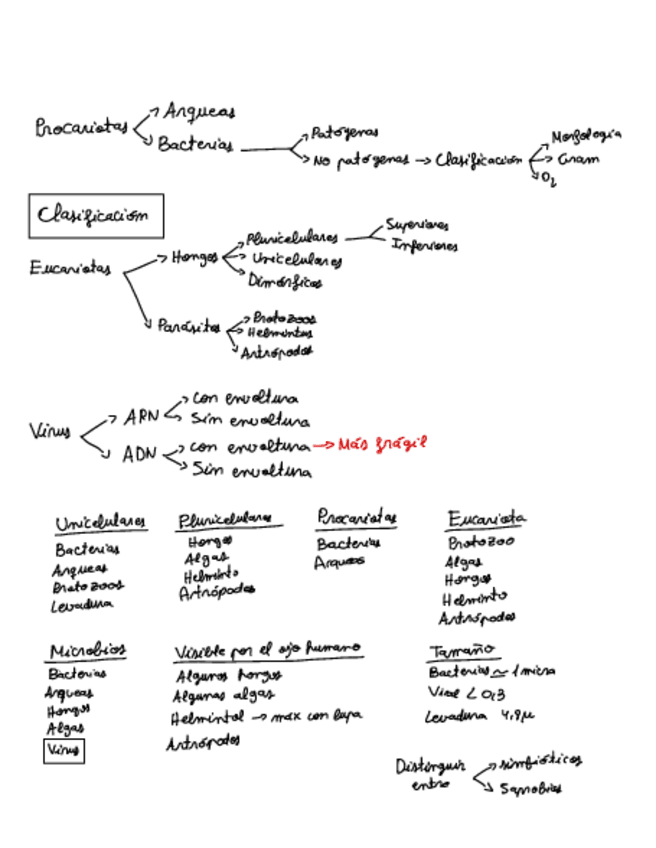 Procariotas → Arqueas
→ Bacterias → Patógenas
→ No patógenas → Clasificación → Morfología
→ Gram
→ O2
Clasificación
Eucariotas → Hongos → Pluricelulares — Superiores
Inferiores
→ Unicelulares
→ Dimórficos
→ Parásitos → Protozoos
→ Helmintos
→ Artrópodos
Virus → ARN → con envoltura
→ Sin envoltura
→ ADN → con envoltura → Más frágil
→ Sin envoltura
Unicelulares
Bacterias
Arqueas
Protozoos
Levadura
Pluricelulares
Hongos
Algas
Helminto
Artrópodos
Procariotas
Bacterias
Arqueas
Eucariota
Protozoo
Algas
Hongos
Helminto
Artrópodos
Microbios
Bacterias
Arqueas
Hongos
Algas
Virus
Visible por el ojo humano
Algunos hongos
Algunas algas
→ max con lupa
Artrópodos
Tamaño
Bacterias ≃ 1 micra
< 0,3
Levadura 4,9µ
Distinguir entre → simbióticos
→ Saprobios